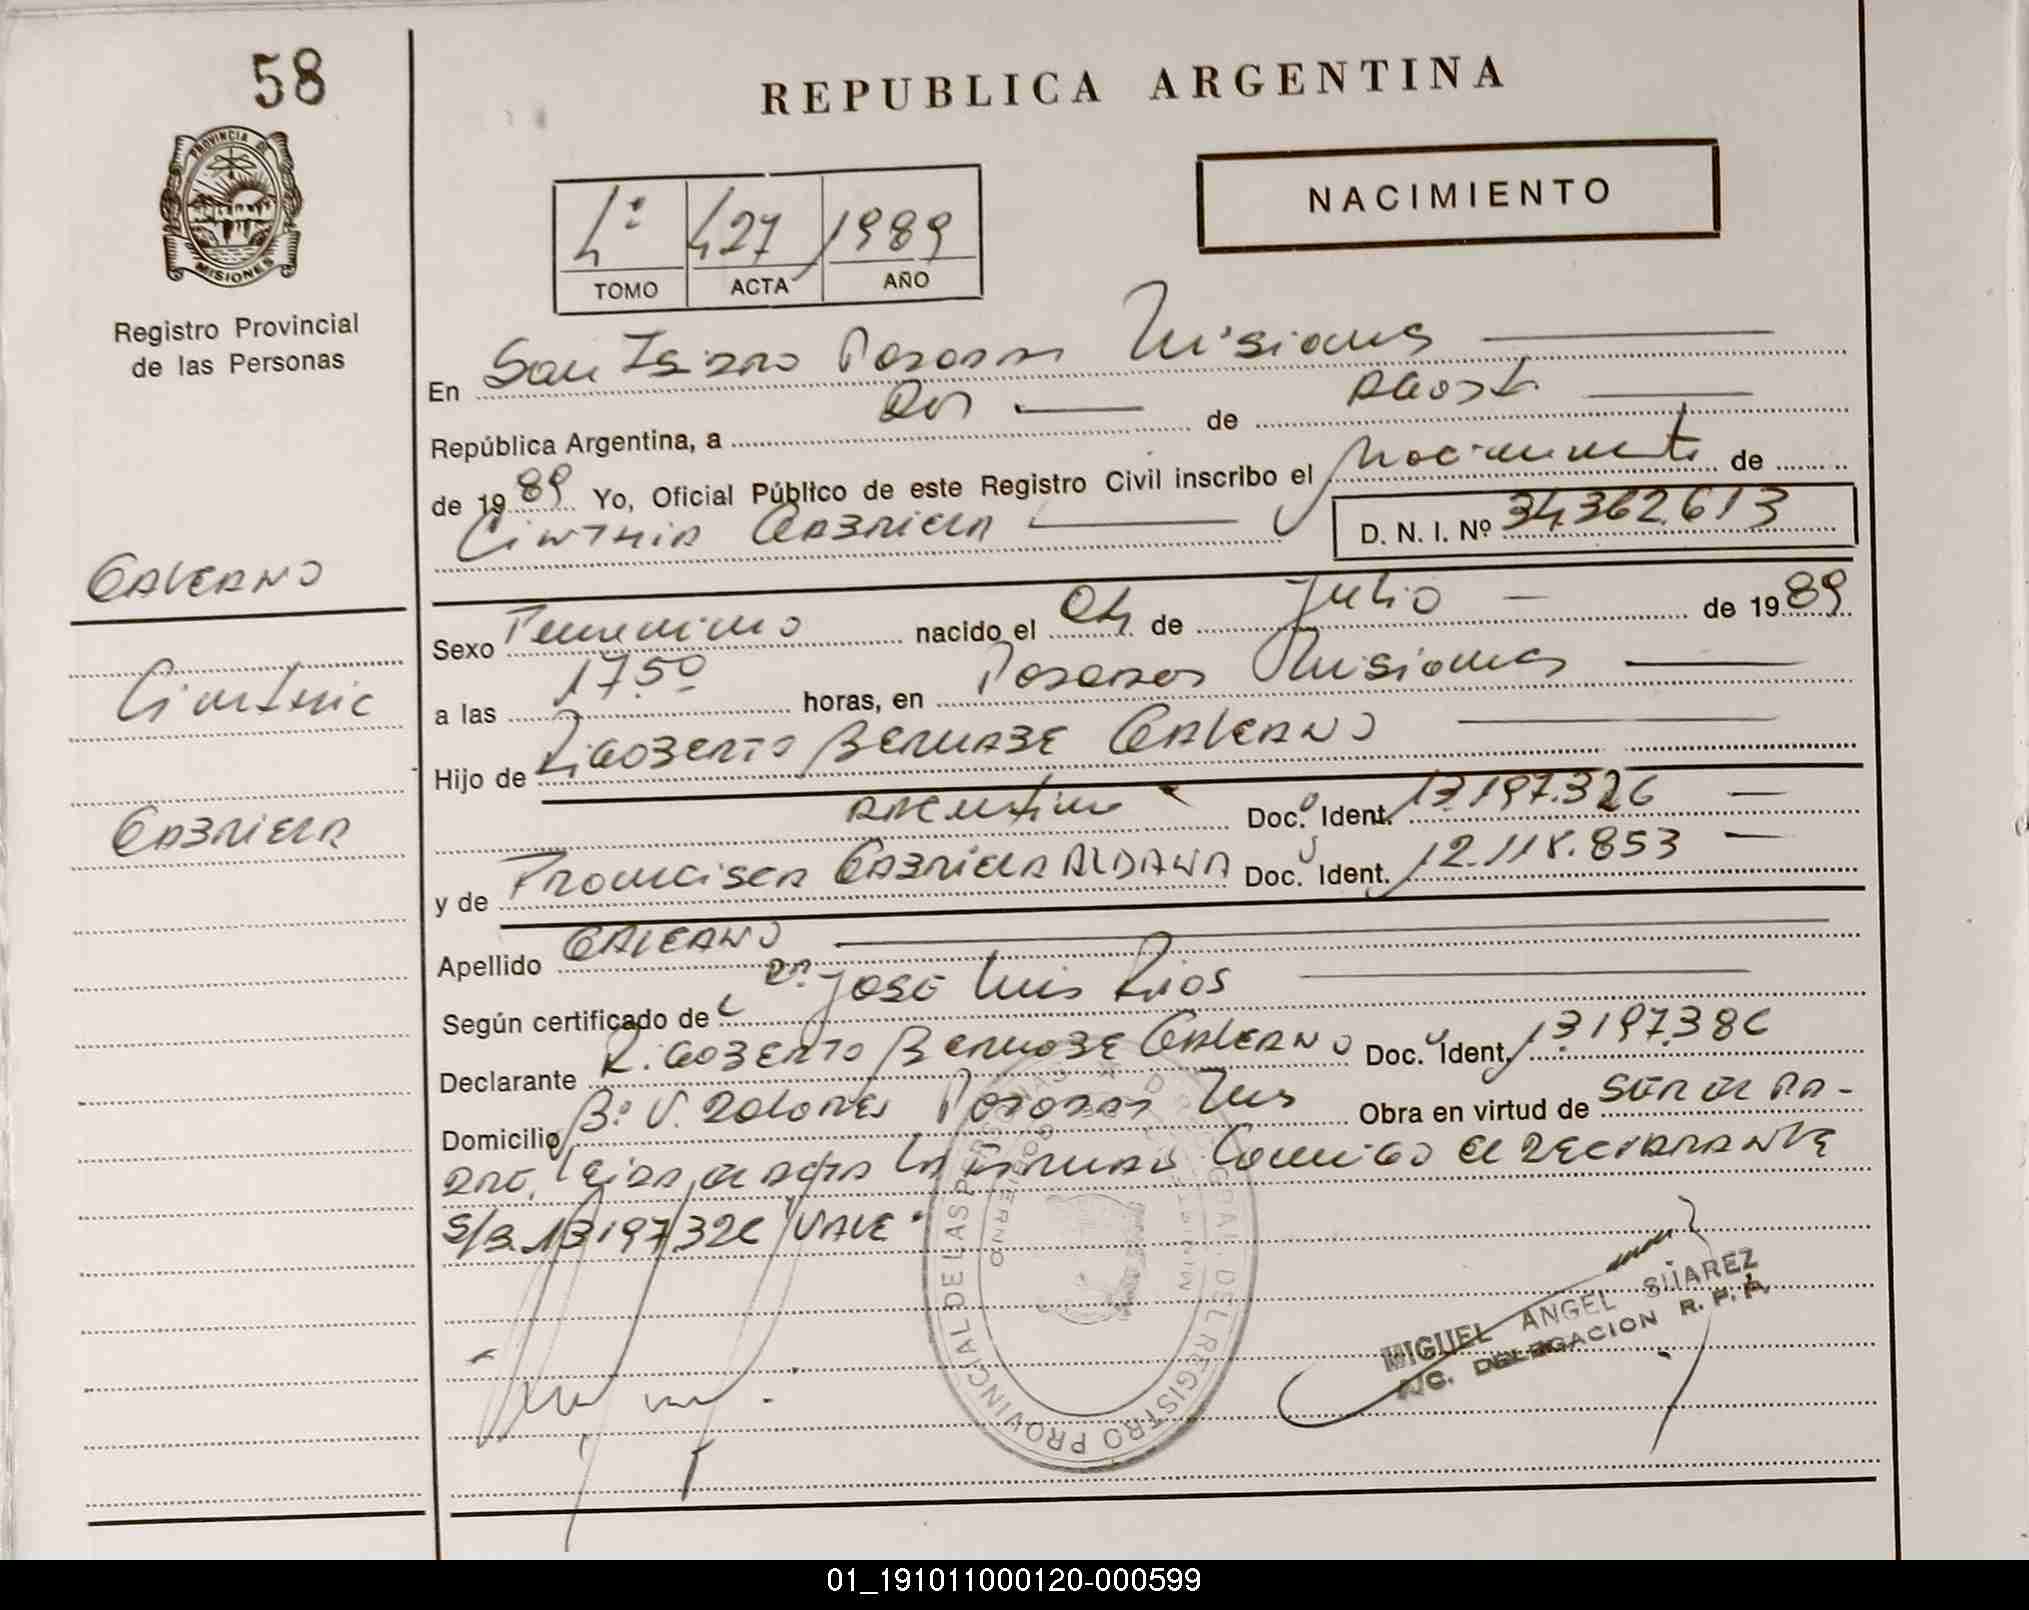 58
REPUBLICA ARGENTINA
PROVINCIA DE
MISIONES
Registro Provincial
de las Personas
NACIMIENTO
4º 427 1989
TOMO ACTA AÑO
En San Isidro Posadas Misiones
República Argentina, a Dos de Agosto
de 1989 Yo, Oficial Público de este Registro Civil inscribo el Nacimiento de
Cinthia Gabriela
D. N. I. Nº 34.362.613
GALEANO
Cinthia
Gabriela
Sexo Femenino nacido el 04 de Julio de 1989
a las 17.50 horas, en Posadas Misiones
Hijo de Rigoberto Bernabe Galeano
Argentino Doc. Ident. 13.197.326
y de Francisca Gabriela ALDANA Doc. Ident. 12.118.853
Apellido GALEANO
Según certificado de Dr. Jose Luis Rios
Declarante Rigoberto Bernabe Galeano Doc. Ident. 13.197.386
Domicilio Bº V. Dolores Posadas Mns Obra en virtud de Ser el Pa-
dre. Leida el acta la firma conmigo el declarante
S/B. 13.197.326 "VALE"
MIGUEL ANGEL SUAREZ
DELEGACION R. P. P.
REGISTRO PROVINCIAL DE LAS PERSONAS
01_191011000120-000599